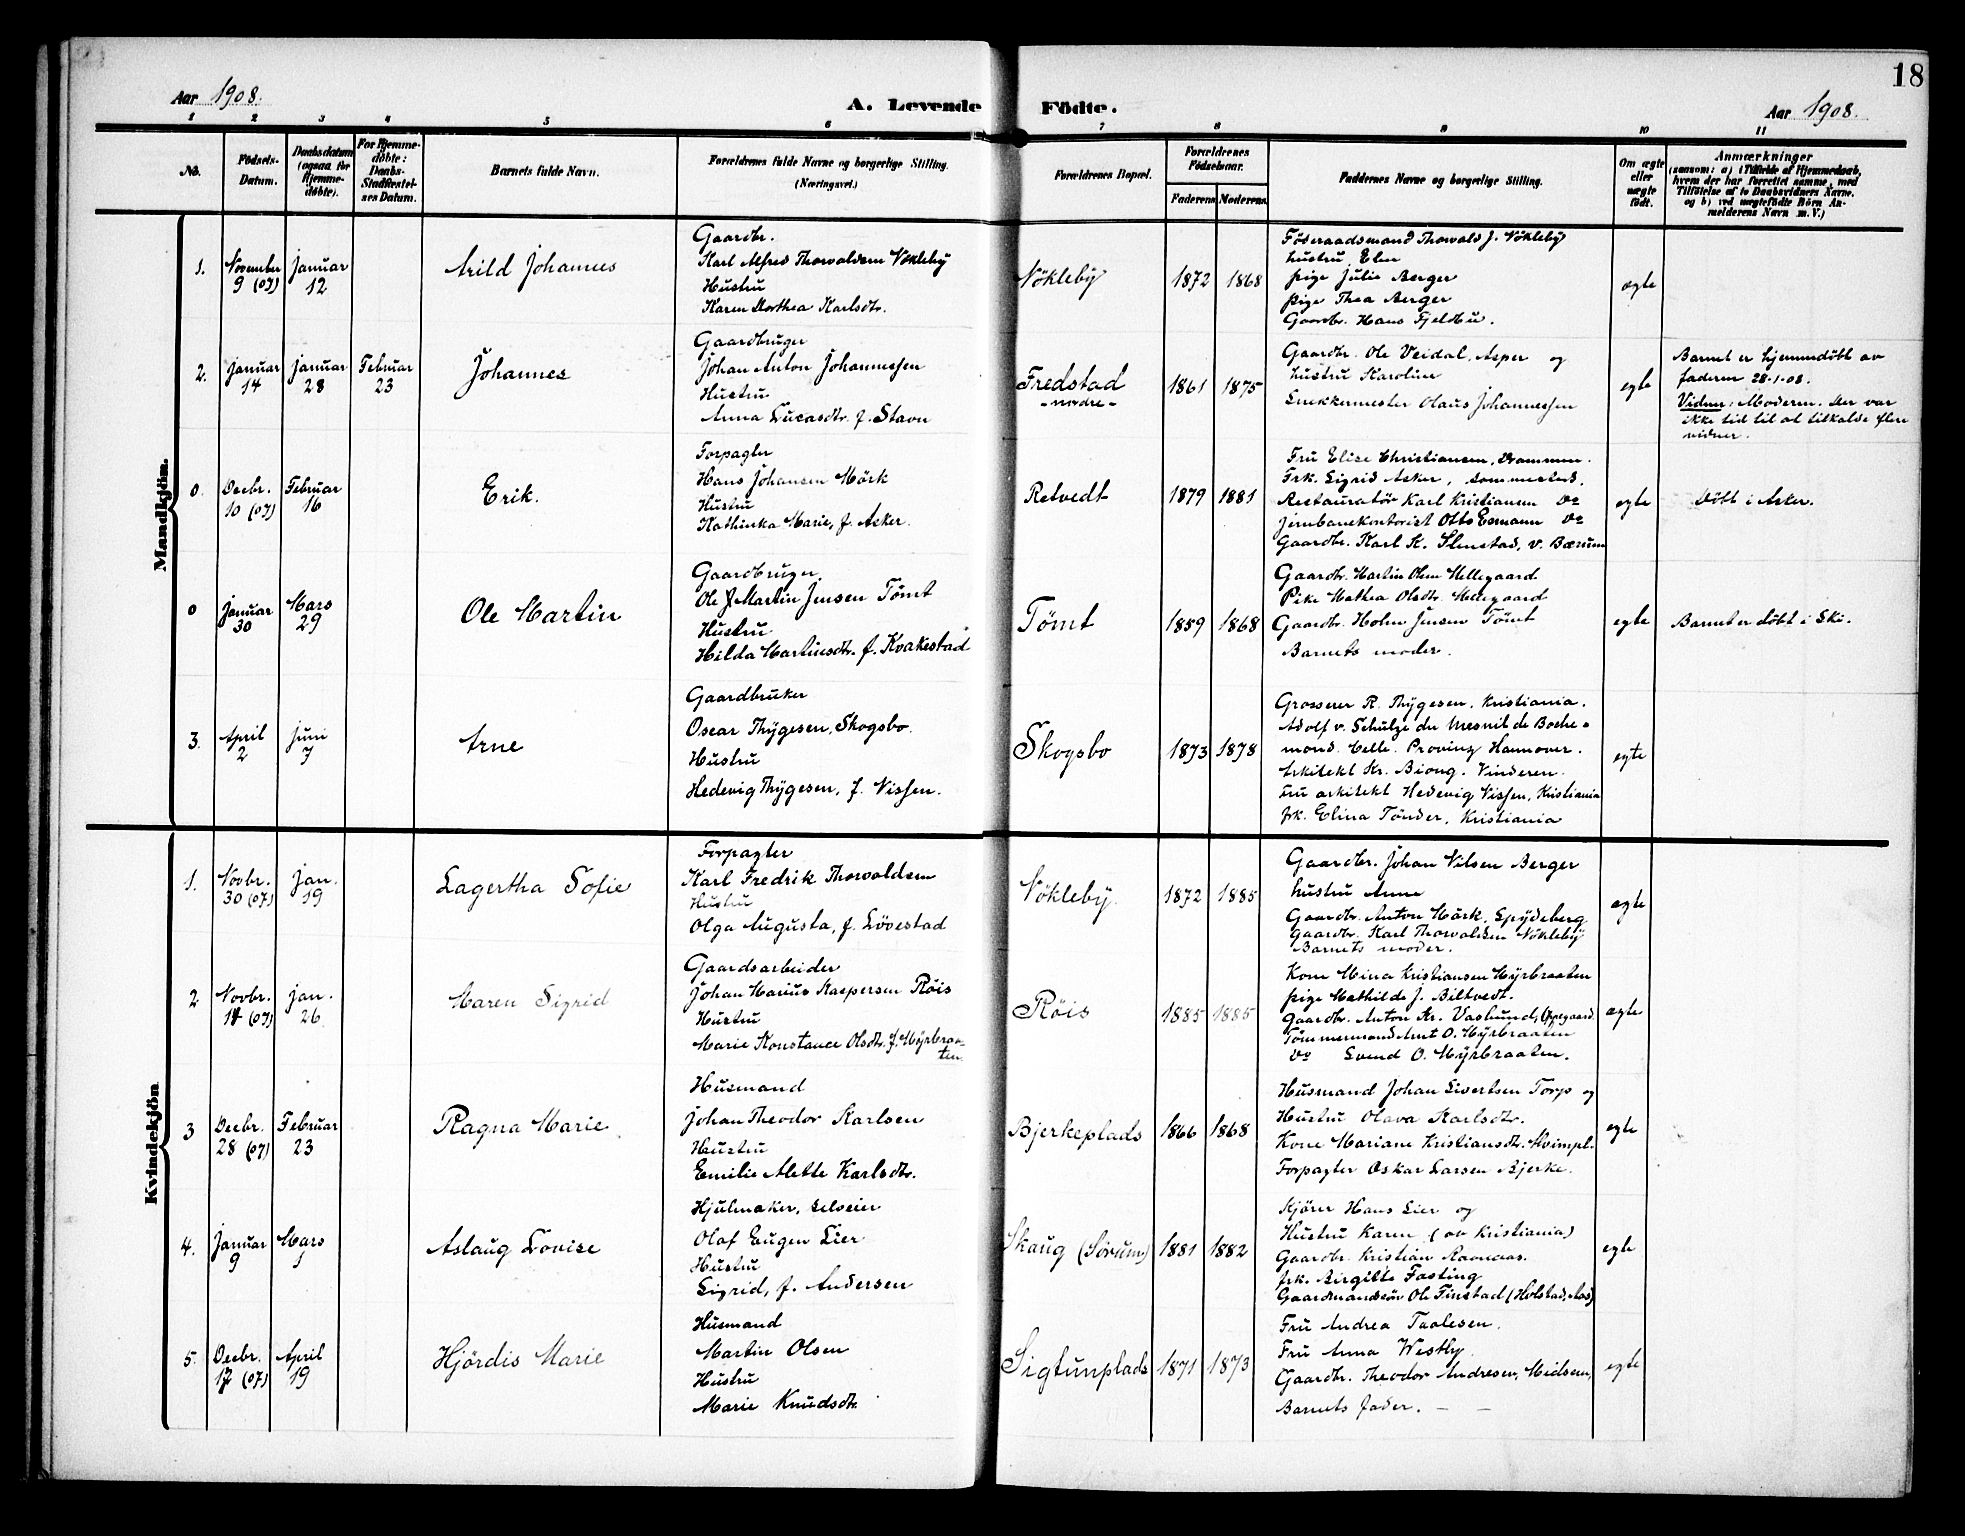 18
Aar 1908.
A. Levende Födte.
Aar 1908.
1 2 3 4 5 6 7 8 9 10 11
No.
Födsels-
Datum.
Daabsdatum
(ogsaa for
Hjemme-
döbte).
For Hjemme-
döbte:
Daabs-
Stadfæstel-
ses Datum.
Barnets fulde Navn.
Forældrenes fulde Navne og borgerlige Stilling.
(Næringsvei.)
Forældrenes Bopæl.
Forældrenes
Födselsaar.
Faderens.
Moderens.
Faddernes Navne og borgerlige Stilling.
Om ægte
eller
uægte
födt.
Anmærkninger
(saasom: a) i Tilfælde af Hjemmedaab,
hvem der har forrettet samme, med
Tilföielse af to Daabsvidners Navne,
og b) ved uægtefödte Börn An-
melderens Navn m. V.)
Mandkjön.
1.
November
9 (07)
Januar
12
Arild Johannes
Gaardbr.
Karl Alfred Thorvaldsen Nökleby
Hustru
Karen Dorthea Karlsdtr.
Nökleby
1872
1868
Föderaadsmand Thorvald J. Nökleby
hustru Elen
pige Julie Berger
pige Thea Berger
Gaardbr. Hans Fjeldbu.
ægte
2.
Januar
14
Januar
28
Februar
23
Johannes
Gaardbruger
Johan Anton Johannessen
Hustru
Anna Lucasdtr. f. Stavn
Fredstad
- nedre -
1861
1875
Gaardbr. Ole Veidal, Asper og
hustru Karoline
Snekkermester Olaus Johannessen
egte
Barnet er hjemmedöbt av
faderen 28-1-08.
Vidner: Moderen. Der var
ikke tid til at tilkalde flere
vidner.
0.
Decbr.
10 (07)
Februar
16
Erik.
Forpagter
Hans Johansen Mörk
Hustru
Kathinka Marie, f. Asker.
Retvedt
1879
1881
Fru Elise Christiansen, Drammen.
Frk. Sigrid Asker, sammesteds.
Restauratör Karl Kristiansen Do
Jernbanekontorist Otto Do
Gaardbr. Karl K. v. Bærum
egte
Döbt i Asker.
0
Januar
30
Mars
29
Ole Martin
Gaardbruger.
Ole J Martin Jensen Tömt
Hustru
Hilda Martinsdtr. f. Kvakestad
Tömt
1859
1868
Gaardbr. Martin Olsen Hellegaard
Pike Mathea Olsdtr. Hellegaard
Gaardbr. Holm Jensen Tömt
Barnets moder.
egte
Barnet er döbt i Ski.
3.
April
2
Juni
7
Arne
Gaardbruker
Oscar Thygesen, Skogsbo.
Hustru
Hedevig Thygesen, f. Nissen.
Skogsbo
1873
1878
Grosserer R. Thygesen, Kristiania.
Adolf v. Schulze du Mesnil de Roche-
mond. Celle. Provinz Hannover.
Arkitekt Kr. Biong. Vinderen.
Fru arkitekt Hedevig Nissen, Kristiania
frk. Elina Tönder, Kristiania
egte
Kvindekjön
1.
Novbr.
30 (07)
Jan.
19
Lagertha Sofie
Forpagter
Karl Fredrik Thorvaldsen
Hustru
Olga Augusta, f. Lövestad
Nökleby.
1872
1885
Gaardbr. Johan Nilsen Berger
hustru Anne
Gaardbr. Anton Mörk, Spydeberg
Gaardbr. Karl Thorvaldsen Nökleby
Barnets moder.
ægte
2
Novbr.
14 (07)
Jan.
26
Maren Sigrid
Gaardsarbeider
Johan Marius Kaspersen Röis
Hustru
Marie Konstance Olsdtr. f. Myrbraa-
ten
Röis
1885
1885
Kone Mina Kristiansen Myrbraaten
pige Mathilde J. Biltvedt.
Gaardbr. Anton Kr. Vaslund, Oppegaard.
Tömmermand Amt O. Myrbraaten
Do Svend O. Myrbraaten.
ægte
3
Decbr.
28 (07)
Februar
23
Ragna Marie
Husmand
Johan Theodor Karlsen
Hustru
Emilie Alette Karlsdtr.
Bjerkeplads
1866
1868
Husmand Johan Sivertsen Torp og
Hustru Olava Karlsdtr.
Kone Mariane Kristiansdtr.
Forpagter Oskar Larsen Bjerke.
egte
4.
Januar
9
Mars
1
Aslaug Lovise
Hjulmaker, selveier
Olaf Eugen Lier
Hustru
Sigrid, f. Andersen
Skaug (Sörum)
1881
1882
Kjörer Hans Lier og
Hustru Karen (av Kristiania)
Gaardbr. Kristian Ravnaas.
frk. Birgitte Fasting
Gaardmandssön Ole Finstad (Holstad, Aas)
egte
5.
Decbr.
17 (07)
April
19
Hjördis Marie
Husmand
Martin Olsen
Hustru
Marie Knudsdtr.
Sigtunplads
1871
1873
Fru Andrea Taalesen.
Fru Anna Westby.
Gaardbr. Theodor Andresen, Midsem,
Barnets fader. - -
egte